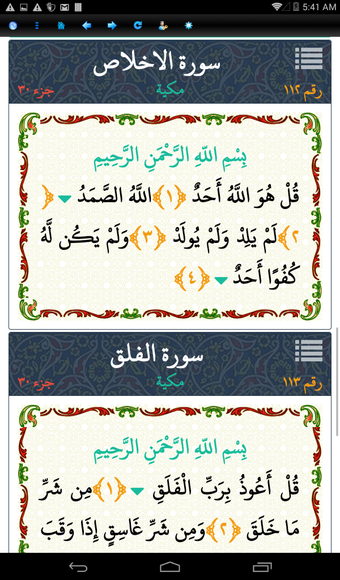 5:41 AM
سورة الاخلاص
رقم ١١٢ مكية جزء ٣٠
بِسْمِ اللَّهِ الرَّحْمَنِ الرَّحِيمِ
قُلْ هُوَ اللَّهُ أَحَدٌ ﴿١﴾ اللَّهُ الصَّمَدُ ﴿
٢﴾ لَمْ يَلِدْ وَلَمْ يُولَدْ ﴿٣﴾ وَلَمْ يَكُن لَّهُ
كُفُوًا أَحَدٌ ﴿٤﴾
سورة الفلق
رقم ١١٣ مكية جزء ٣٠
بِسْمِ اللَّهِ الرَّحْمَنِ الرَّحِيمِ
قُلْ أَعُوذُ بِرَبِّ الْفَلَقِ ﴿١﴾ مِن شَرِّ
مَا خَلَقَ ﴿٢﴾ وَمِن شَرِّ غَاسِقٍ إِذَا وَقَبَ